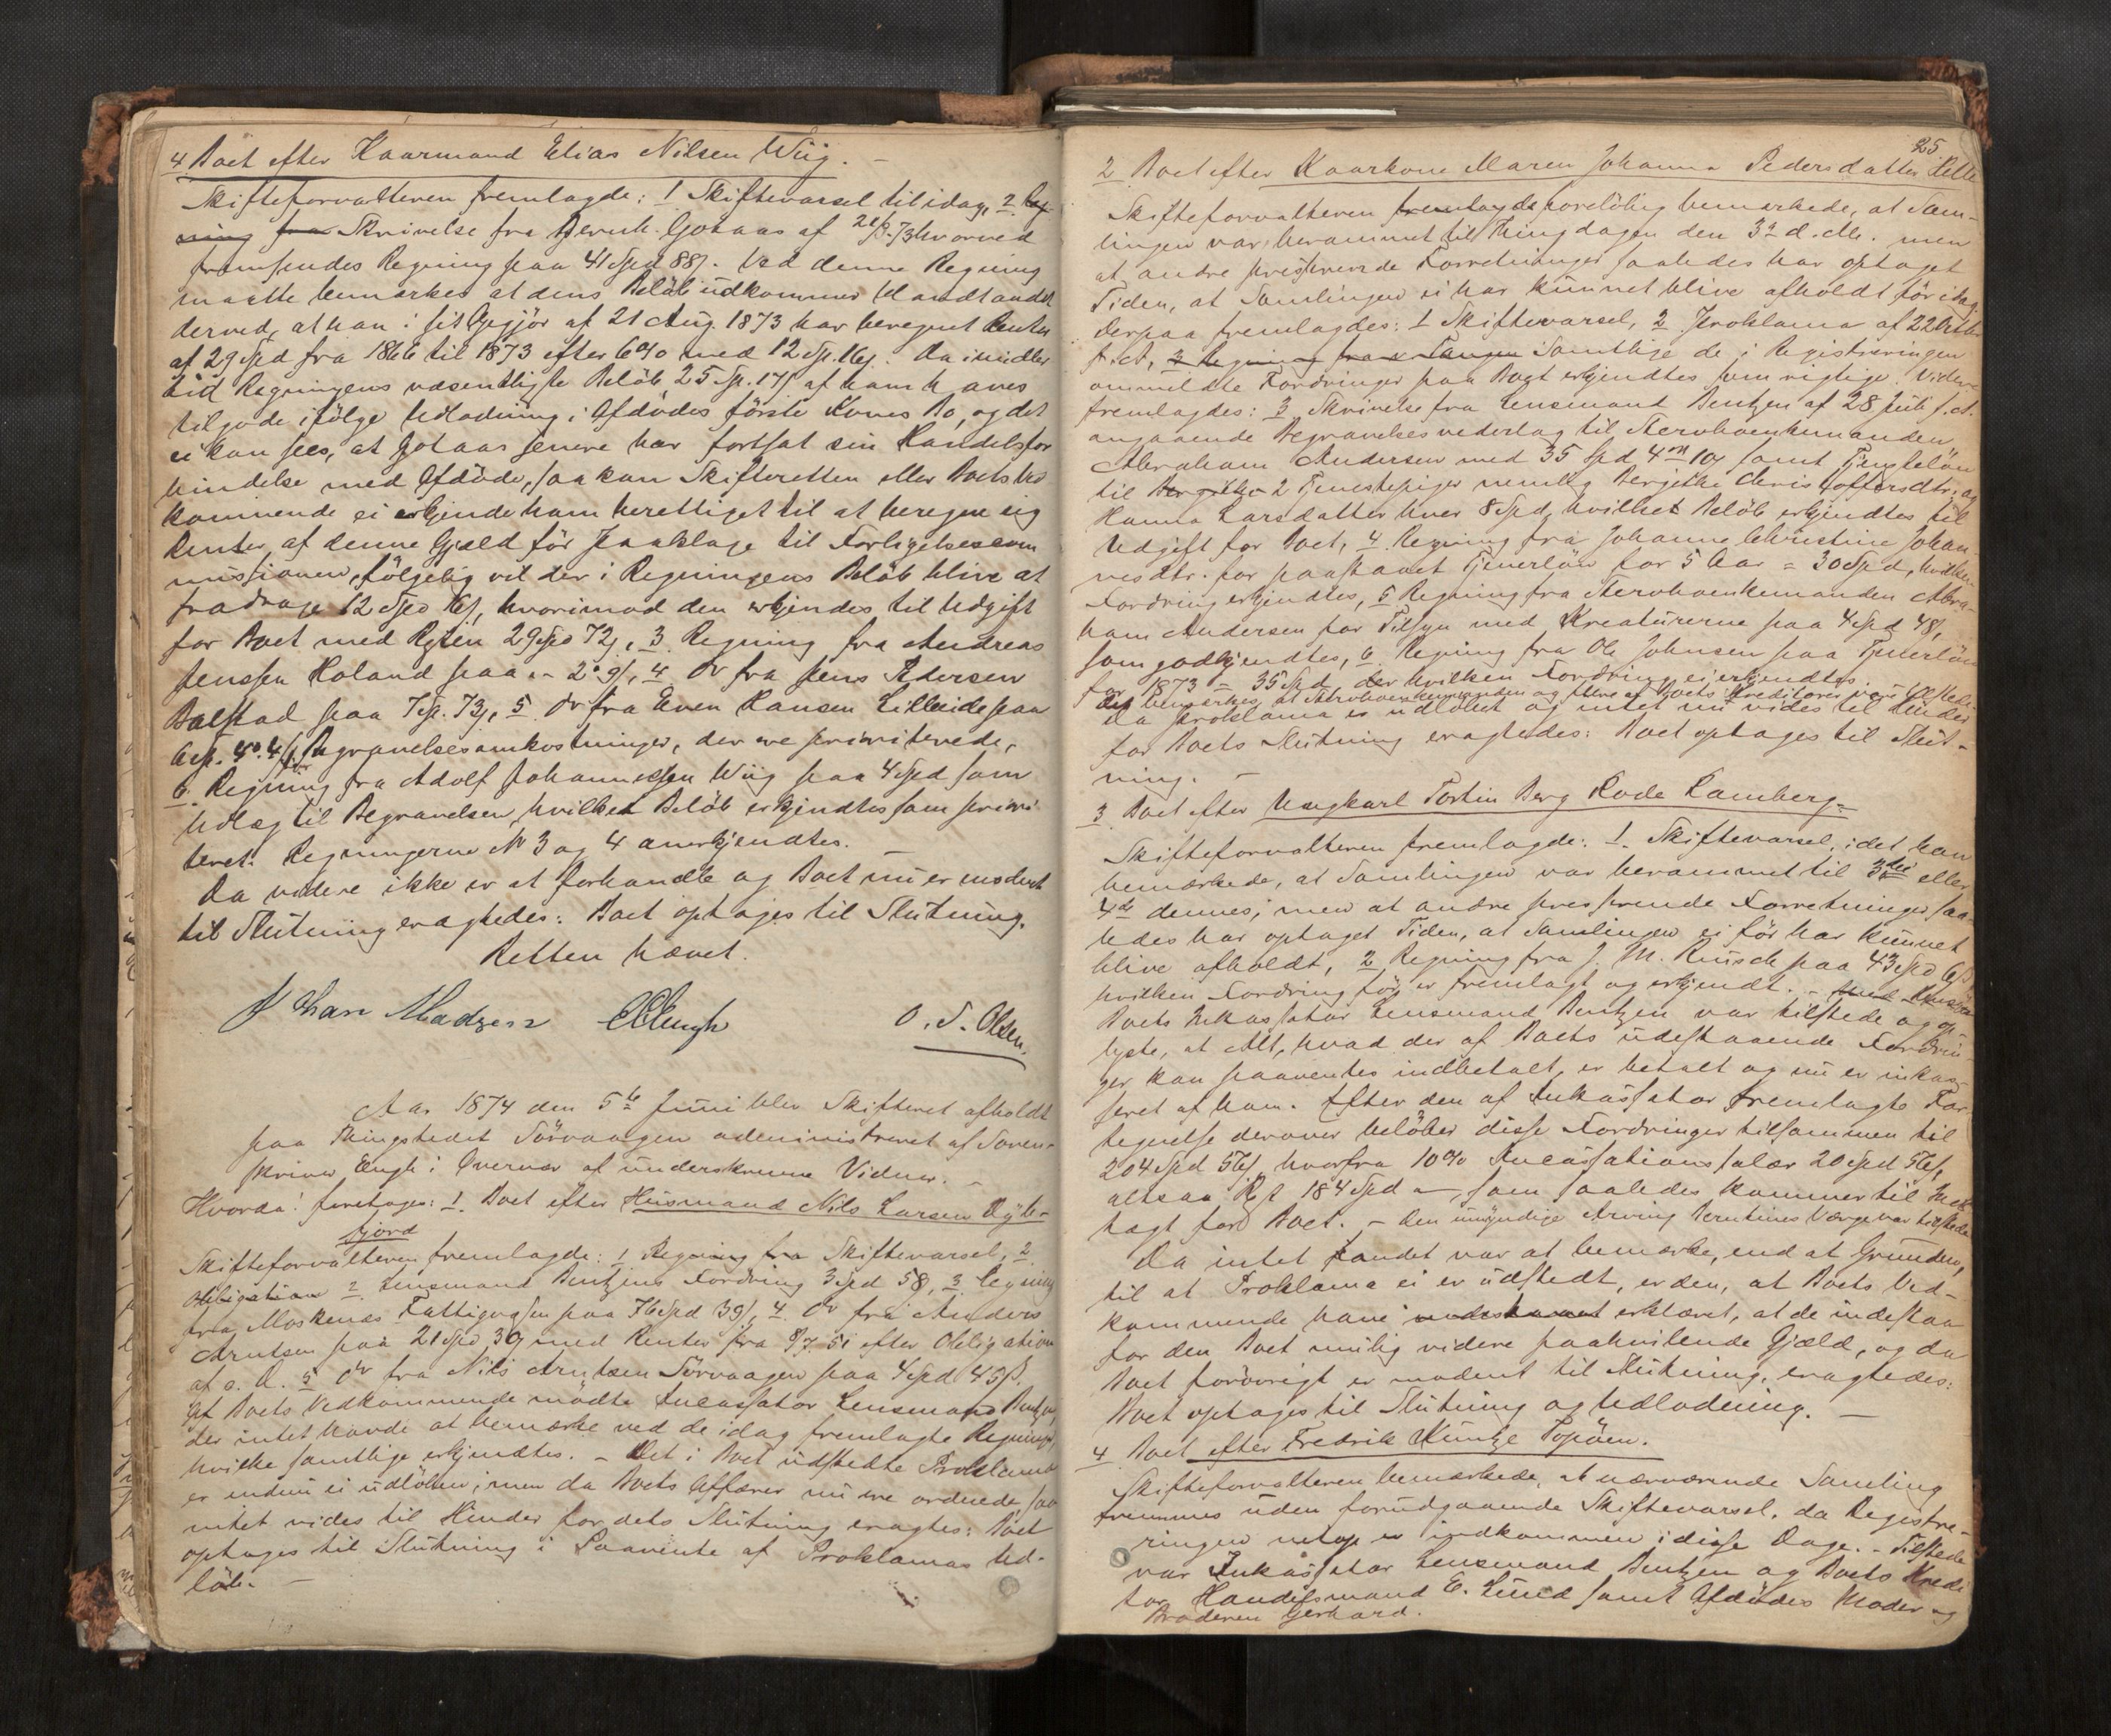 4. Boet efter Kaarmand Elias Nilsen Wiig. –
Skifteforvalteren fremlagde: 1 Skiftevarsel til idag, 2. Reg-
ning fra Skrivelse fra Bernh. Gotaas af 21/8 73 hvorved
fremsendes Regning paa 41 Spd 88 s. Ved denne Regning
maatte bemærkes at dens Beløb udkommer blandt andet
derved, at han i sit Opgjør af 21 Aug. 1873 har beregnet Renter
af 29 Spd fra 1866 til 1873 efter 6% med 12 Sp. 16 s. Da imidler
tid Regningens væsentligste Beløb 25 Sp. 17 s af ham haves
tilgode ifølge Udlodning i Afdødes første Kones Bo, og det
ei kan sees, at Gotaas senere har fortsat sin Handelsfor
bindelse med Afdøde, saa kan Skifteretten eller Boets Ved
kommende ei erkjende ham berettiget til at beregne sig
Renter af denne Gjæld før Paaklage til Forligelsescom
missionen, følgelig vil der i Regningens Beløb blive at
fradrage 12 Spd 16 s, hvorimod den erkjendes til Udgift
for Boet med Resten 29 Spd 72 s, 3 Regning fra Andreas
Jenssen Holand paa " 2 o 9 s, 4 Do fra Jens Pedersen
Balstad paa 7 Sp. 73 s, 5 Do fra Even Hansen Lilleeide paa
6 Sp. 4 o 4 s for Begravelsesomkostninger, der ere prioriterede,
6 Regning fra Adolf Johannessen Wiig paa 4 Spd som
Udlæg til Begravelsen, hvilket Beløb erkjendtes som priori
teret. Regningerne No 3 og 4 anerkjendtes. –
Da videre ikke er at forhandle og Boet nu er modent
til Slutning eragtedes: Boet optages til Slutning.
Retten hævet.
Johan Madzen EEngh O. S. Olsen.
Aar 1874 den 5te Juni blev Skifteret afholdt
paa Thingstedet Sørvaagen administreret af Soren-
skriver Engh i Overvær af underskrevne Vidner. –
Hvorda! foretoges: 1. Boet efter Husmand Nils Larsen Dyb-
fjord
Skifteforvalteren fremlagde: 1 Regning fra Skiftevarsel, 2
Obligation 2 Lensmand Bentzens Fordring 3 Spd 58, 3 Regning
fra Moskenæs Fattigvæsen paa 76 Spd 39 s, 4 Do fra Anders
Arntsen paa 21 Spd 39 med Renter fra 8/7 51 efter Obligation
af s. D. 5 Do fra Nils Arntsen Sørvaagen paa 4 Spd 43 s.
Af Boets Vedkommende mødte Incassator Lensmand Bentzen,
der intet havde at bemærke ved de idag fremlagte Regninger,
hvilke samtlige erkjendtes. – Det i Boet udstedte Proklama
er endnu ei udløben; men da Boets Affærer nu ere ordnede saa
intet vides til Hinder for dets Slutning eragtes: Boet
optages til Slutning i Paavente af Proklamas Ud-
løb. –
25
2 Boet efter Kaarkone Maren Johanna Pedersdatter Helle
Skifteforvalteren fremlagde foreløbig bemærkede, at Sam-
lingen var berammet til Thingdagen den 3de d. M. men
at andre presserende Forretninger saaledes har optaget
Tiden, at Samlingen ei har kunnet blive afholdt før idag.
Derpaa fremlagdes: 1 Skiftevarsel, 2 Proklama af 22 Octbr
f. A, 3 Regning fra Samtlige de i Registreringen
anmeldte Fordringer paa Boet erkjendtes som rigtige. Videre
fremlagdes: 3 Skrivelse fra Lensmand Bentzen af 28 Juli f. A.
angaaende Begravelsesvederlag til Stervboenkemanden
Abraham Andersen med 35 Spd 4 m 10 s samt Tjenesteløn
til Bergithe 2 Tjenestepiger nemlig Bergithe Christoffersdtr. og
Hanna Larsdatter hver 8 Spd, hvilket Beløb erkjendtes til
Udgift for Boet, 4 Regning fra Johanne Christine Johan-
nesdtr. for paastaaet Tjenerløn for 5 Aar = 30 Spd, hvilken
Fordring erkjendtes, 5 Regning fra Stervboenkemanden Abra-
ham Andersen for Tilsyn med Kreaturerne paa 4 Spd 48 s,
som godkjendtes, 6 Regning fra Ole Johnsen paa Tjenerløn
for 1873 = 35 Spd der hvilken Fordring ei erkjendtes.
Det bemærkes, at Stervboenkemanden og flere af Boets Kreditorer vare tilstede.
Da Proklama er udløbet og intet nu vides til Hinder
for Boets Slutning eragtedes: Boet optages til Slut-
ning. –
3 Boet efter Ungkarl Tostin Berg Hode Ramberg.
Skifteforvalteren fremlagde: 1. Skiftevarsel, idet han
bemærkede, at Samlingen var berammet til 3die eller
4de dennes; men at andre presserende Forretninger saa-
ledes har optaget Tiden, at Samlingen ei før har kunnet
blive afholdt, 2 Regning fra J. M. Knüsch paa 43 Spd 6 s
hvilken Fordring før er fremlagt og erkjendt. –
Boets Inkassator Lensmand Bentzen var tilstede og op-
lyste, at Alt, hvad der af Boets udestaaende Fordrin-
ger kan paaventes indbetalt, er betalt og nu er inkas-
seret af ham. Efter den af Inkassator fremlagte For-
tegnelse derover beløber disse Fordringer tilsammen til
204 Spd 56 s, hvorfra 10% Incassationssalær 20 Spd 56 s,
altsaa Rest 184 Spd –, som saaledes kommer til Ind-
tægt for Boet. – Den umyndige Arving Berntines Værge var tilstede
Da intet Landet var at bemærke, end at Grunden,
til at Proklama ei er udstedt, er den, at Boets Ved-
kommende have erklæret, at de indestaa
for den Boet mulig videre paahvilende Gjæld, og da
Boet forøvrigt er modent til Slutning, eragtedes:
Boet optages til Slutning og Udlodning. –
4 Boet efter Fredrik Küntze Topøen.
Skifteforvalteren bemærkede, at nærværende Samling
fremmes uden forudgaaende Skiftevarsel, da Registre-
ringen netop er indkommen i disse Dage. – Tilstede
var Inkassator Lensmand Bentzen og Boets Kredi
tor Handelsmand E. Lund samt Afdødes Moder og
Broderen Gerhard.